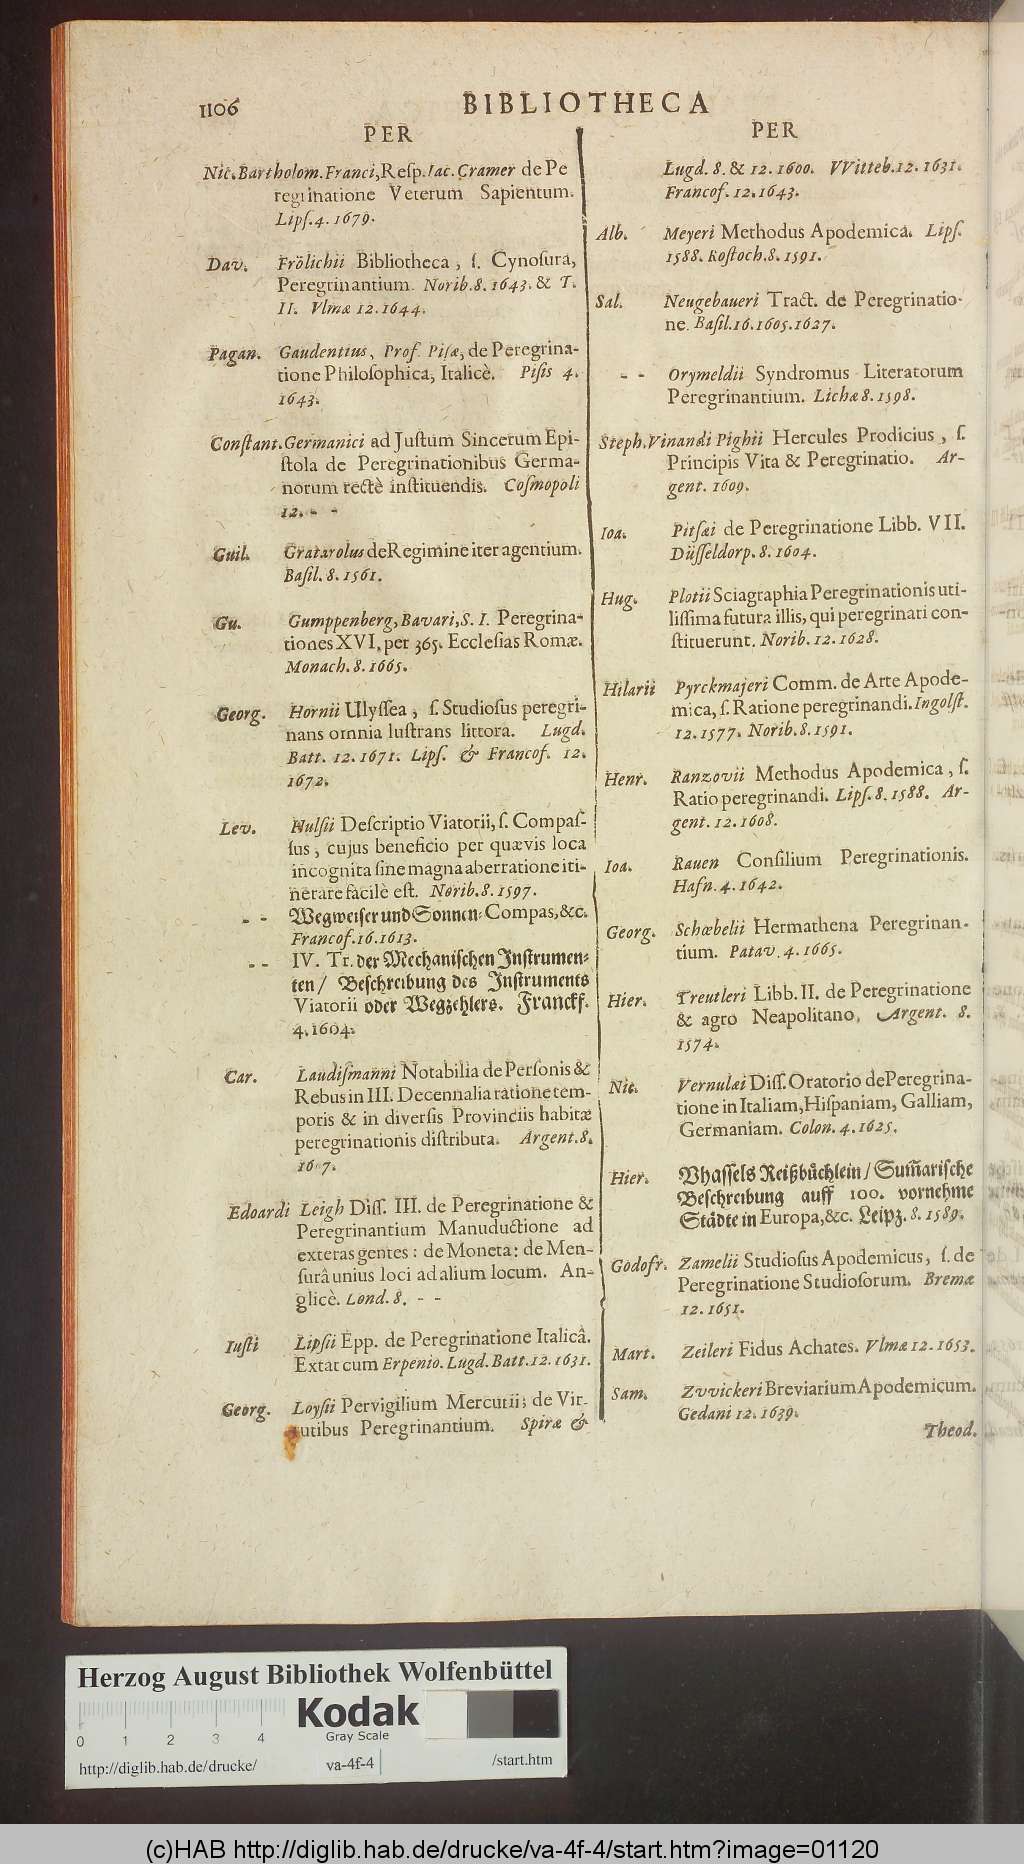 1106
BIBLIOTHECA
PER
Nic. Bartholom. Franci, Resp. Iac. Cramer de Pe
regrinatione Veterum Sapientum.
Lips. 4. 1679.
Dav. Frölichii Bibliotheca, ſ. Cynoſura,
Peregrinantium. Norib. 8. 1643. & T.
II. Vlmæ 12. 1644.
Pagan. Gaudentius, Prof. Piſæ, de Peregrina-
tione Philoſophica, Italicè. Piſis 4.
1643.
Conſtant. Germanici ad Juſtum Sincerum Epi-
ſtola de Peregrinationibus Germa-
norum rectè inſtituendis. Coſmopoli
12. - -
Guil. Gratarolus de Regimine iter agentium.
Baſil. 8. 1561.
Gu. Gumppenberg, Bavari, S. I. Peregrina-
tiones XVI, per 365. Eccleſias Romæ.
Monach. 8. 1665.
Georg. Hornii Ulyſſea, ſ. Studioſus peregri-
nans omnia luſtrans littora. Lugd.
Batt. 12. 1671. Lipſ. & Francof. 12.
1672.
Lev. Hulſii Deſcriptio Viatorii, ſ. Compaſ-
ſus, cujus beneficio per quævis loca
incognita ſine magna aberratione iti-
nerare facilè eſt. Norib. 8. 1597.
- - Wegweiſer und Sonnen-Compas, &c.
Francof. 16. 1613.
- - IV. Tr. der Mechaniſchen Inſtrumen-
ten / Beſchreibung des Inſtruments
Viatorii oder Wegzehlers. Franckf.
4. 1604.
Car. Laudiſmanni Notabilia de Perſonis &
Rebus in III. Decennalia ratione tem-
poris & in diverſis Provinciis habitæ
peregrinationis diſtributa. Argent. 8.
Edoardi Leigh Diſſ. III. de Peregrinatione &
Peregrinantium Manuductione ad
exteras gentes: de Moneta: de Men-
ſurâ unius loci ad alium locum. An-
glicè. Lond. 8. - -
Iuſti Lipſii Epp. de Peregrinatione Italicâ.
Extat cum Erpenio. Lugd. Batt. 12. 1631.
Georg. Loyſii Pervigilium Mercurii; de Vir-
tutibus Peregrinantium. Spiræ &
PER
Lugd. 8. & 12. 1600. VVitteb. 12. 1631.
Francof. 12. 1643.
Alb. Meyeri Methodus Apodemica. Lipſ.
1588. Roſtoch. 8. 1591.
Sal. Neugebaueri Tract. de Peregrinatio-
ne. Baſil. 16. 1605. 1627.
- - Orymeldii Syndromus Literatorum
Peregrinantium. Lichæ 8. 1598.
Steph. Vinandi Pighii Hercules Prodicius, ſ.
Principis Vita & Peregrinatio. Ar-
gent. 1609.
Ioa. Pitſæi de Peregrinatione Libb. VII.
Düſſeldorp. 8. 1604.
Hug. Plotii Sciagraphia Peregrinationis uti-
liſſima futura illis, qui peregrinari con-
ſtituerunt. Norib. 12. 1628.
Hilarii Pyrckmajeri Comm. de Arte Apode-
mica, ſ. Ratione peregrinandi. Ingolſt.
12. 1577. Norib. 8. 1591.
Henr. Ranzovii Methodus Apodemica, ſ.
Ratio peregrinandi. Lipſ. 8. 1588. Ar-
gent. 12. 1608.
Ioa. Rauen Conſilium Peregrinationis.
Hafn. 4. 1642.
Georg. Schœbelii Hermathena Peregrinan-
tium. Patav. 4. 1665.
Hier. Treutleri Libb. II. de Peregrinatione
& agro Neapolitano. Argent. 8.
1574.
Nic. Vernulæi Diſſ. Oratorio de Peregrina-
tione in Italiam, Hiſpaniam, Galliam,
Germaniam. Colon. 4. 1625.
Hier. Vhaſſels Reißbüchlein / Sum̃ariſche
Beſchreibung auff 100. vornehme
Städte in Europa, &c. Leipz. 8. 1589.
Godofr. Zamelii Studioſus Apodemicus, ſ. de
Peregrinatione Studioſorum. Bremæ
12. 1651.
Mart. Zeileri Fidus Achates. Vlmæ 12. 1653.
Sam. Zvvickeri Breviarium Apodemicum.
Gedani 12. 1639.
Theod.
Herzog August Bibliothek Wolfenbüttel
Kodak
Gray Scale
0 1 2 3 4
http://diglib.hab.de/drucke/ va-4f-4 /start.htm
(c)HAB http://diglib.hab.de/drucke/va-4f-4/start.htm?image=01120